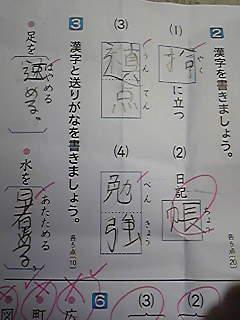 2 漢字を書きましょう。 各5点(20)
(1) やく に立つ
(2) 日記帳 ちょう
(3) うんてん 点
(4) べんきょう 勉強
3 漢字と送りがなを書きましょう。 各5点(10)
足を速める。 はやめる
水を あたためる
6
(2)
(3)
広
町
図